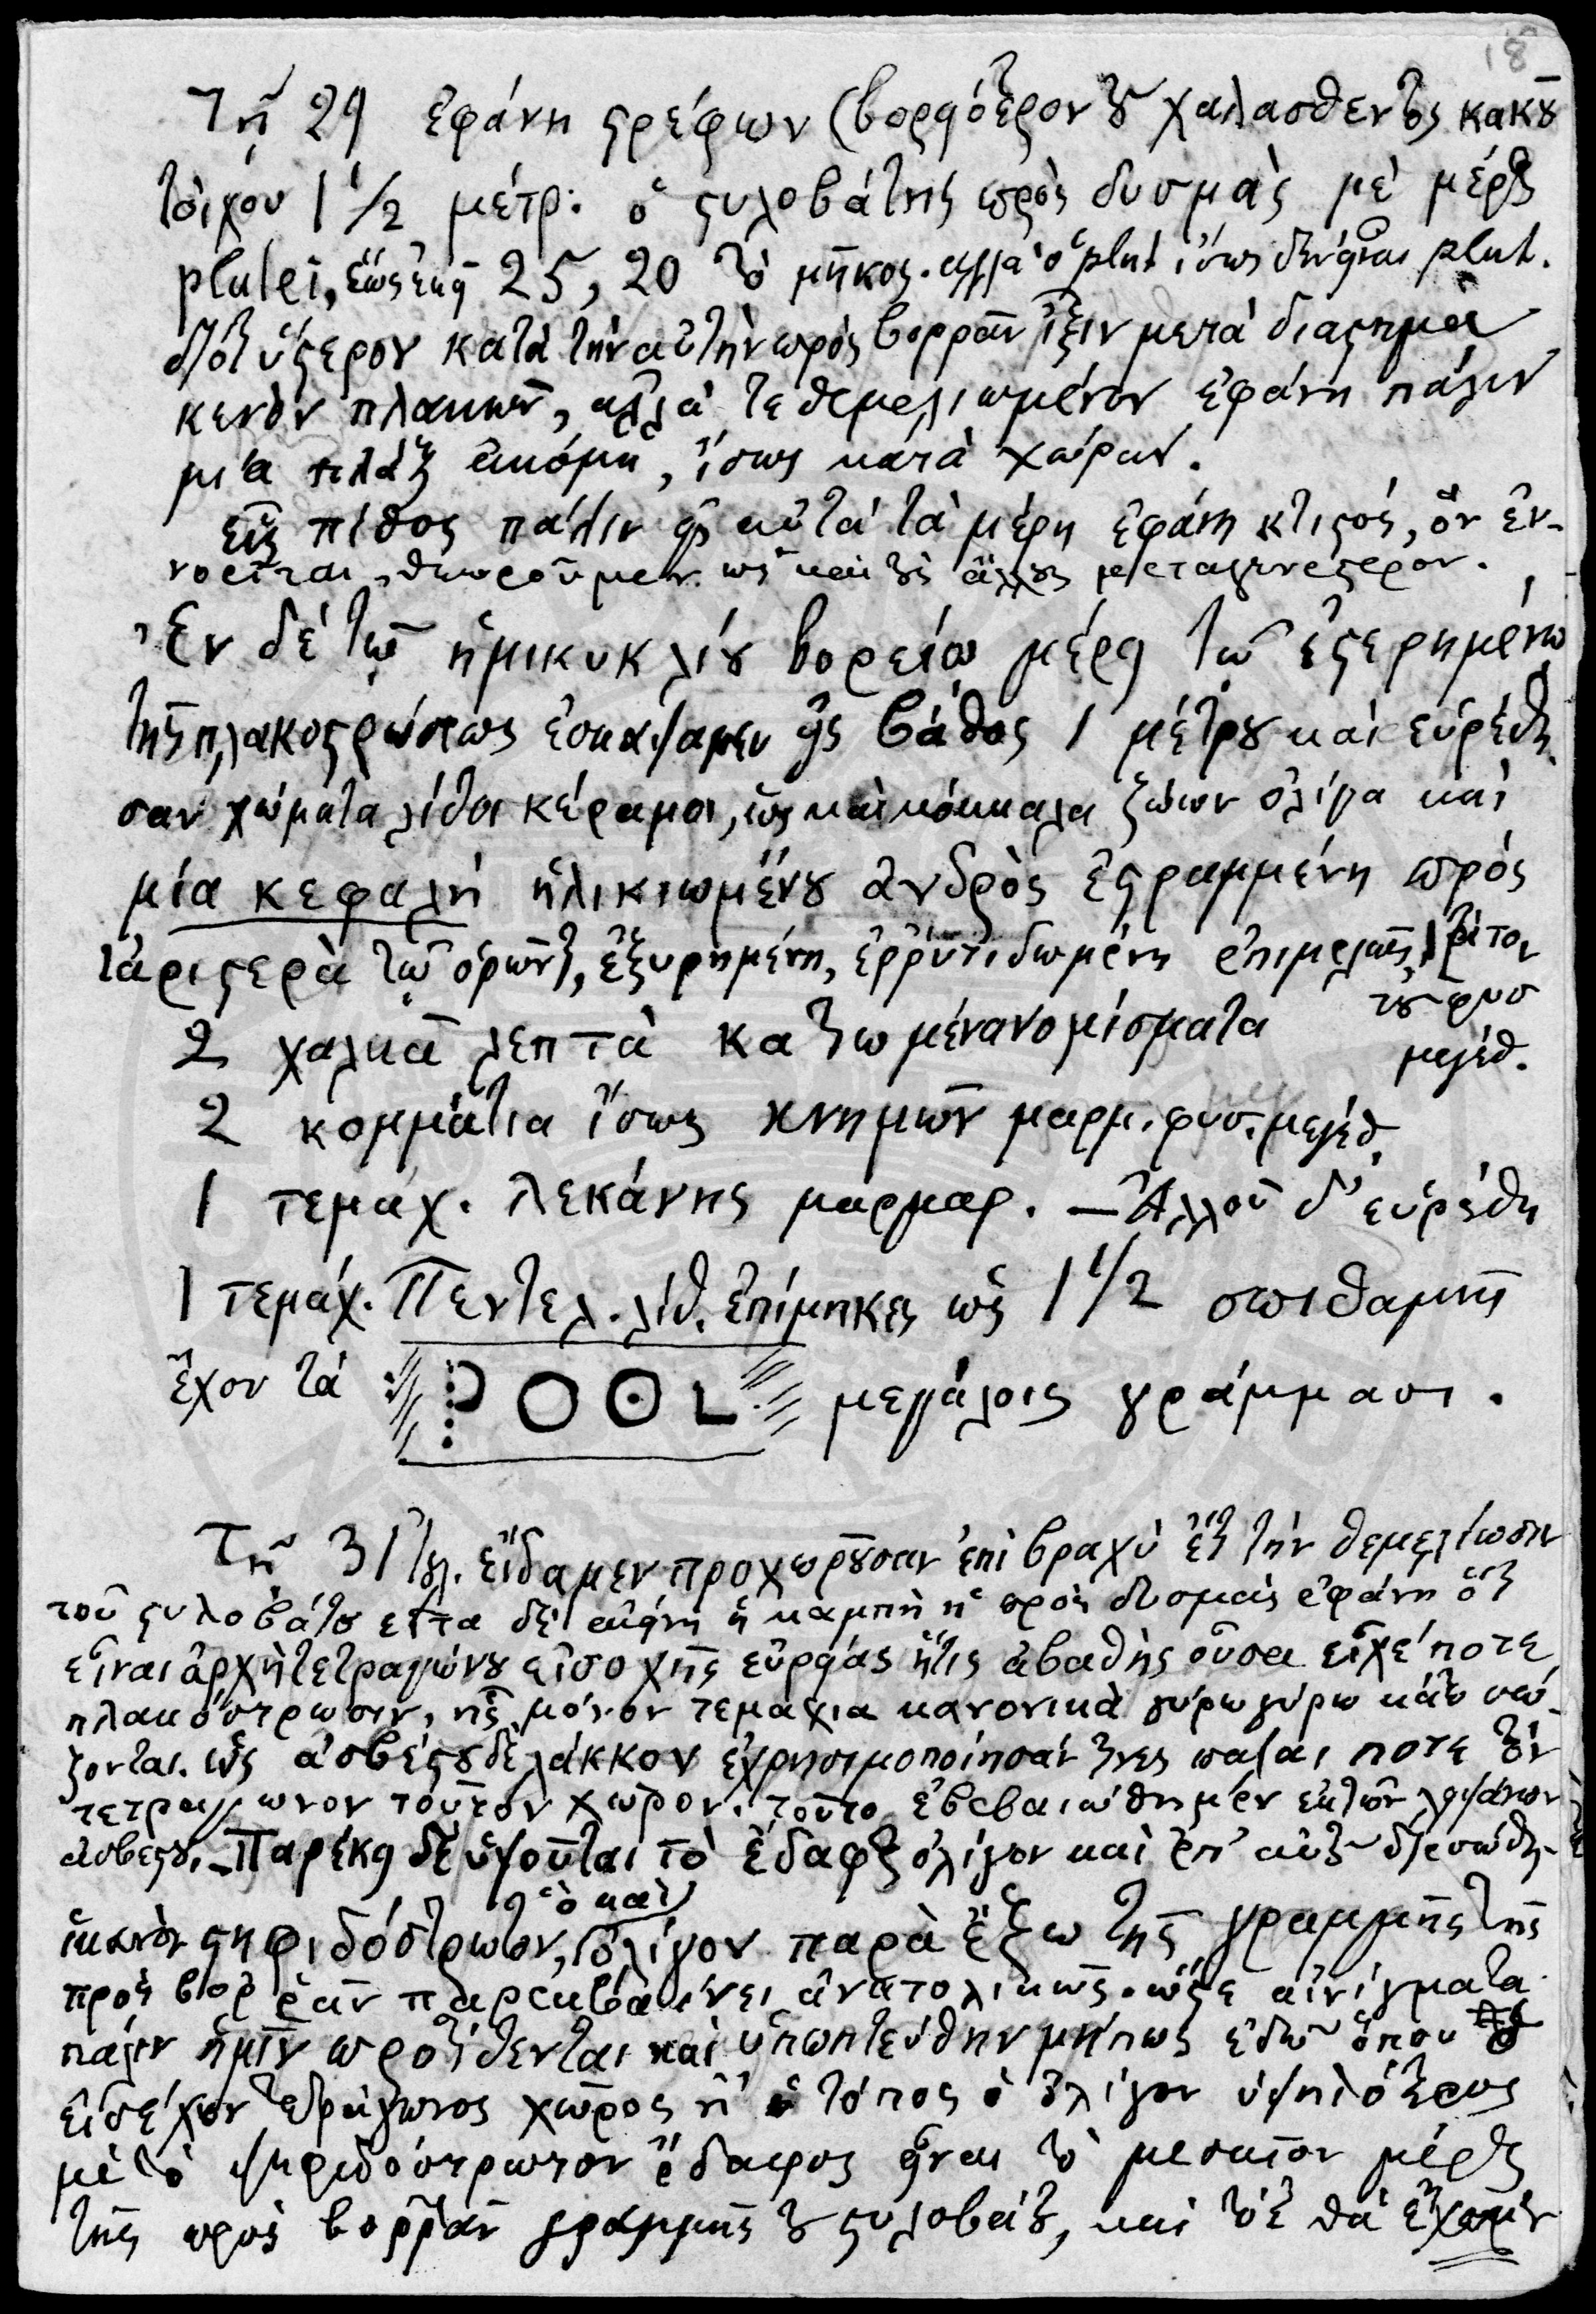 18
Τῇ 29 ἐφάνη στρέφων (βορειότερον τοῦ χαλασθέντος κακοῦ
τοίχου 1 1/2 μέτρ. ὁ στυλοβάτης πρὸς δυσμὰς μὲ μέρος
plutei, ἕως ἐκεῖ 25, 20 τὸ μῆκος. ἀλλὰ ὁ plut ἴσως δὲν εἶναι plut.
διότι ὕστερον κατὰ τὴν αὐτὴν πρὸς βορρᾶν ἴξιν μετὰ διάστημα
κενὸν πλακῶν, ἀλλὰ τεθεμελιωμένον ἐφάνη πάλιν
μία πλὰξ ἀκόμη, ἴσως κατὰ χώραν.
Εἷς πίθος πάλιν εἰς αὐτὰ τὰ μέρη ἐφάνη κτιστός, ὃν ἐν-
νοεῖται θεωροῦμεν ὡς καὶ τοὺς ἄλλους μεταγενέστερον.
Ἐν δὲ τῷ ἡμικυκλίου βορείῳ μέρει τῷ ἐστερημένῳ
τῆς πλακοστρώσεως ἐσκάψαμεν εἰς βάθος 1 μέτρου καὶ εὑρέθη
σαν χώματα λίθοι κέραμοι, ὡς καὶ κόκκαλα ζώων ὀλίγα καὶ
μία κεφαλὴ ἡλικιωμένου ἀνδρὸς ἐστραμμένη πρὸς
τἀριστερὰ τῷ ὁρῶντι, ἐξυρημένη, ἐρρυτιδωμένη ἐπιμελῶς, τρίτον
τοῦ φυσ
2 χαλκᾶ λεπτὰ κατιωμένα νομίσματα
μεγέθ.
2 κομμάτια ἴσως κνημῶν μαρμ. φυσ. μεγέθ.
1 τεμάχ. λεκάνης μαρμαρ. — Ἀλλοῦ δ' εὑρέθη
1 τεμάχ. Πεντελ. λίθ. ἐπίμηκες ὡς 1 1/2 σπιθαμῆς
ἔχον τὰ Ο Ο L μεγάλοις γράμμασι.
Τῇ 31 Ἰουλ. εἴδαμεν προχωροῦσαν ἐπὶ βραχὺ ἔτι τὴν θεμελίωσιν
τοῦ στυλοβάτου εἶτα δὲ ἐκείνη ἡ καμπὴ ἡ πρὸς δυσμὰς ἐφάνη ὅτι
εἶναι ἀρχὴ τετραγώνου εἰσοχῆς εὐρείας ἥτις ἀβαθὴς οὖσα εἶχέ ποτε
πλακόστρωσιν, ἧς μόνον τεμάχια κανονικὰ γύρω γύρω κάτω σώ-
ζονται. ὡς ἀσβέστου δὲ λάκκον ἐχρησιμοποίησάν τινες πάλαι ποτε τὸν
τετράγωνον τοῦτον χῶρον. τοῦτο ἐβεβαιώθημεν ἐκ τῶν λειψάνων
ἀσβέστου. — Παρέκει δὲ ὑψοῦται τὸ ἔδαφος ὀλίγον καὶ ἐπ' αὐτοῦ διεσώθη
ἱκανὸν ψηφιδόστρωτον, ὃ καὶ ὀλίγον παρὰ ἔξω τῆς γραμμῆς τῆς
πρὸς βορρᾶν παρεκβαίνει ἀνατολικῶς. ὥστε αἰνίγματα
πάλιν ἡμῖν προτίθενται καὶ ὑπωπτεύθην μήπως ἐδῶ ὅπου
εἰσέχον τετράγωνος χῶρος ἢ ὁ τόπος ὁ ὀλίγον ὑψηλότερος
μὲ τὸ ψηφιδόστρωτον ἔδαφος εἶναι τὸ μεσαῖον μέρος
τῆς πρὸς βορρᾶν γραμμῆς τοῦ στυλοβάτου, καὶ τότε θὰ ἔχωμεν